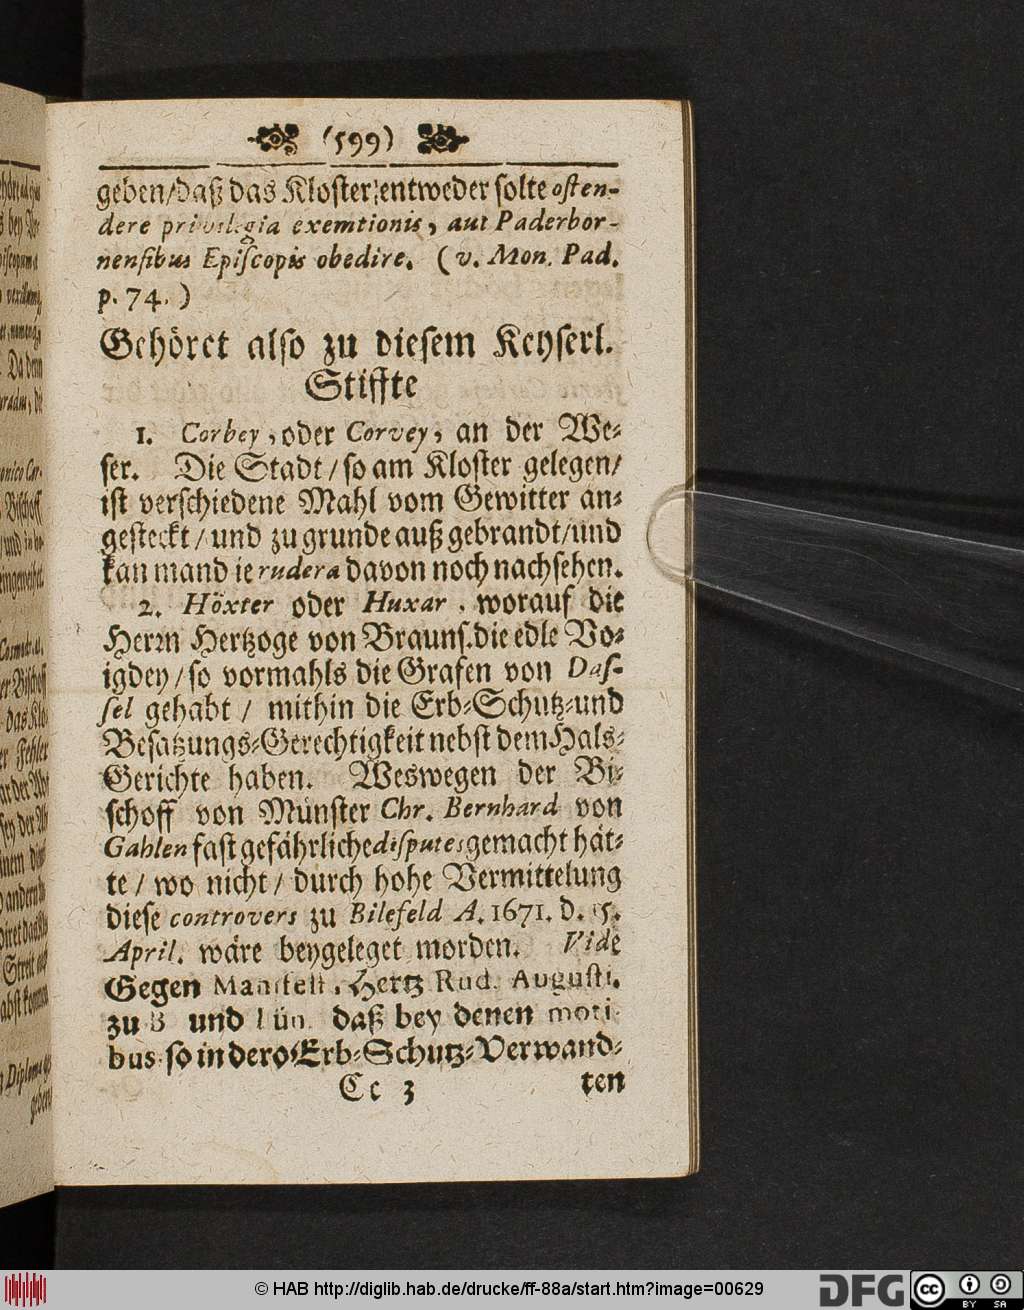 (599)
geben/daß das Kloster entweder solte osten-
dere privilegia exemtionis, aut Paderbor-
nensibus Episcopis obedire. (v. Mon. Pad.
p. 74.)
Gehöret also zu diesem Keyserl.
Stiffte
1. Corbey, oder Corvey, an der We-
ser. Die Stadt/so am Kloster gelegen/
ist verschiedene Mahl vom Gewitter an-
gesteckt/und zu grunde auß gebrandt/und
kan mand ie rudera davon noch nachsehen.
2. Höxter oder Huxar. worauf die
Herrn Hertzoge von Brauns.die edle Vo-
igdey/so vormahls die Grafen von Das-
sel gehabt/ mithin die Erb-Schutz-und
Besatzungs-Gerechtigkeit nebst dem Hals-
Gerichte haben. Weswegen der Bi-
schoff von Münster Chr. Bernhard von
Gahlen fast gefährliche disputes gemacht hät-
te/ wo nicht/ durch hohe Vermittelung
diese controvers zu Bilefeld A. 1671. d. 5.
April. wäre beygeleget worden. Vide
Gegen Manifest. Hertz Rud. Augusti.
zu B und Lün. daß bey denen moti
bus so in dero Erb-Schutz-Verwand-
Cc 3 ten
© HAB http://diglib.hab.de/drucke/ff-88a/start.htm?image=00629
DFG
cc BY SA